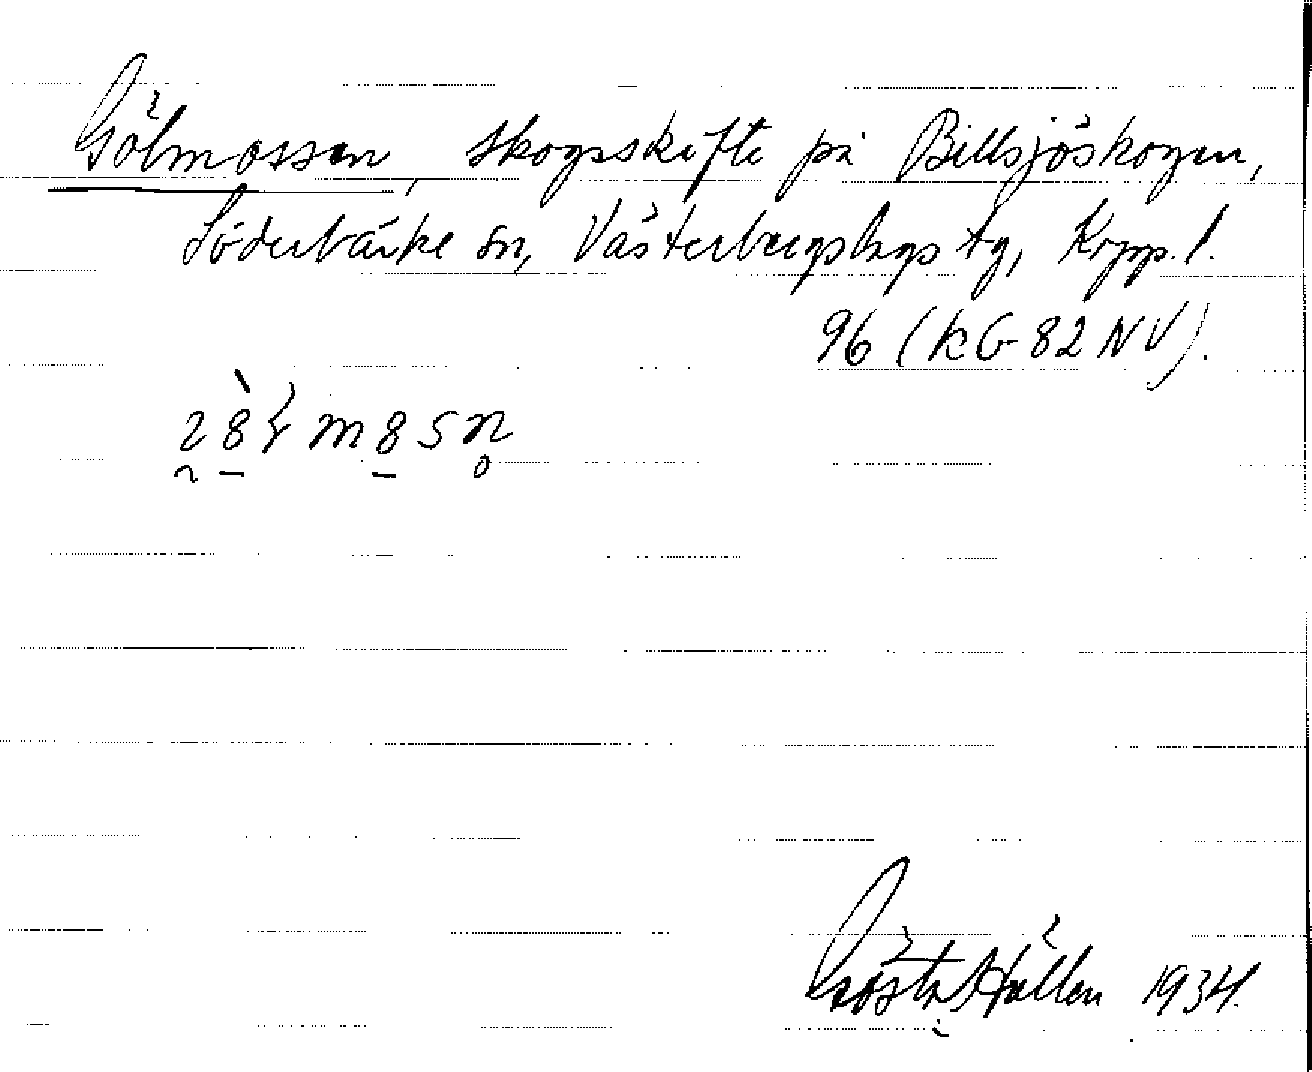 Gölmossen, skogsskifte på Billsjöskogen,
Söderbärke sn, Västerbergslags tg, Kopp. l.
96 (KG 82 NV).
Gösta Hallén 1934.